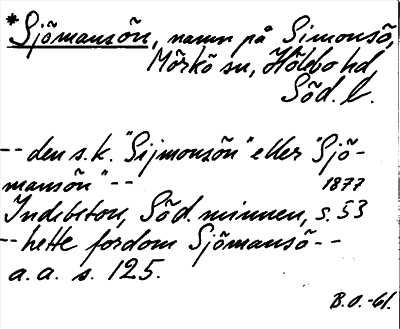 *Sjömansön, namn på Simonsö,
Mörkö sn, Hölebo hd
Söd. l.
-- den s.k. "Sijmonsön" eller "Sjö-
mansön" --
1877
Indebetou, Söd. minnen, s. 53
-- hette fordom Sjömansö --
a. a. s. 125.
B.O.-61.